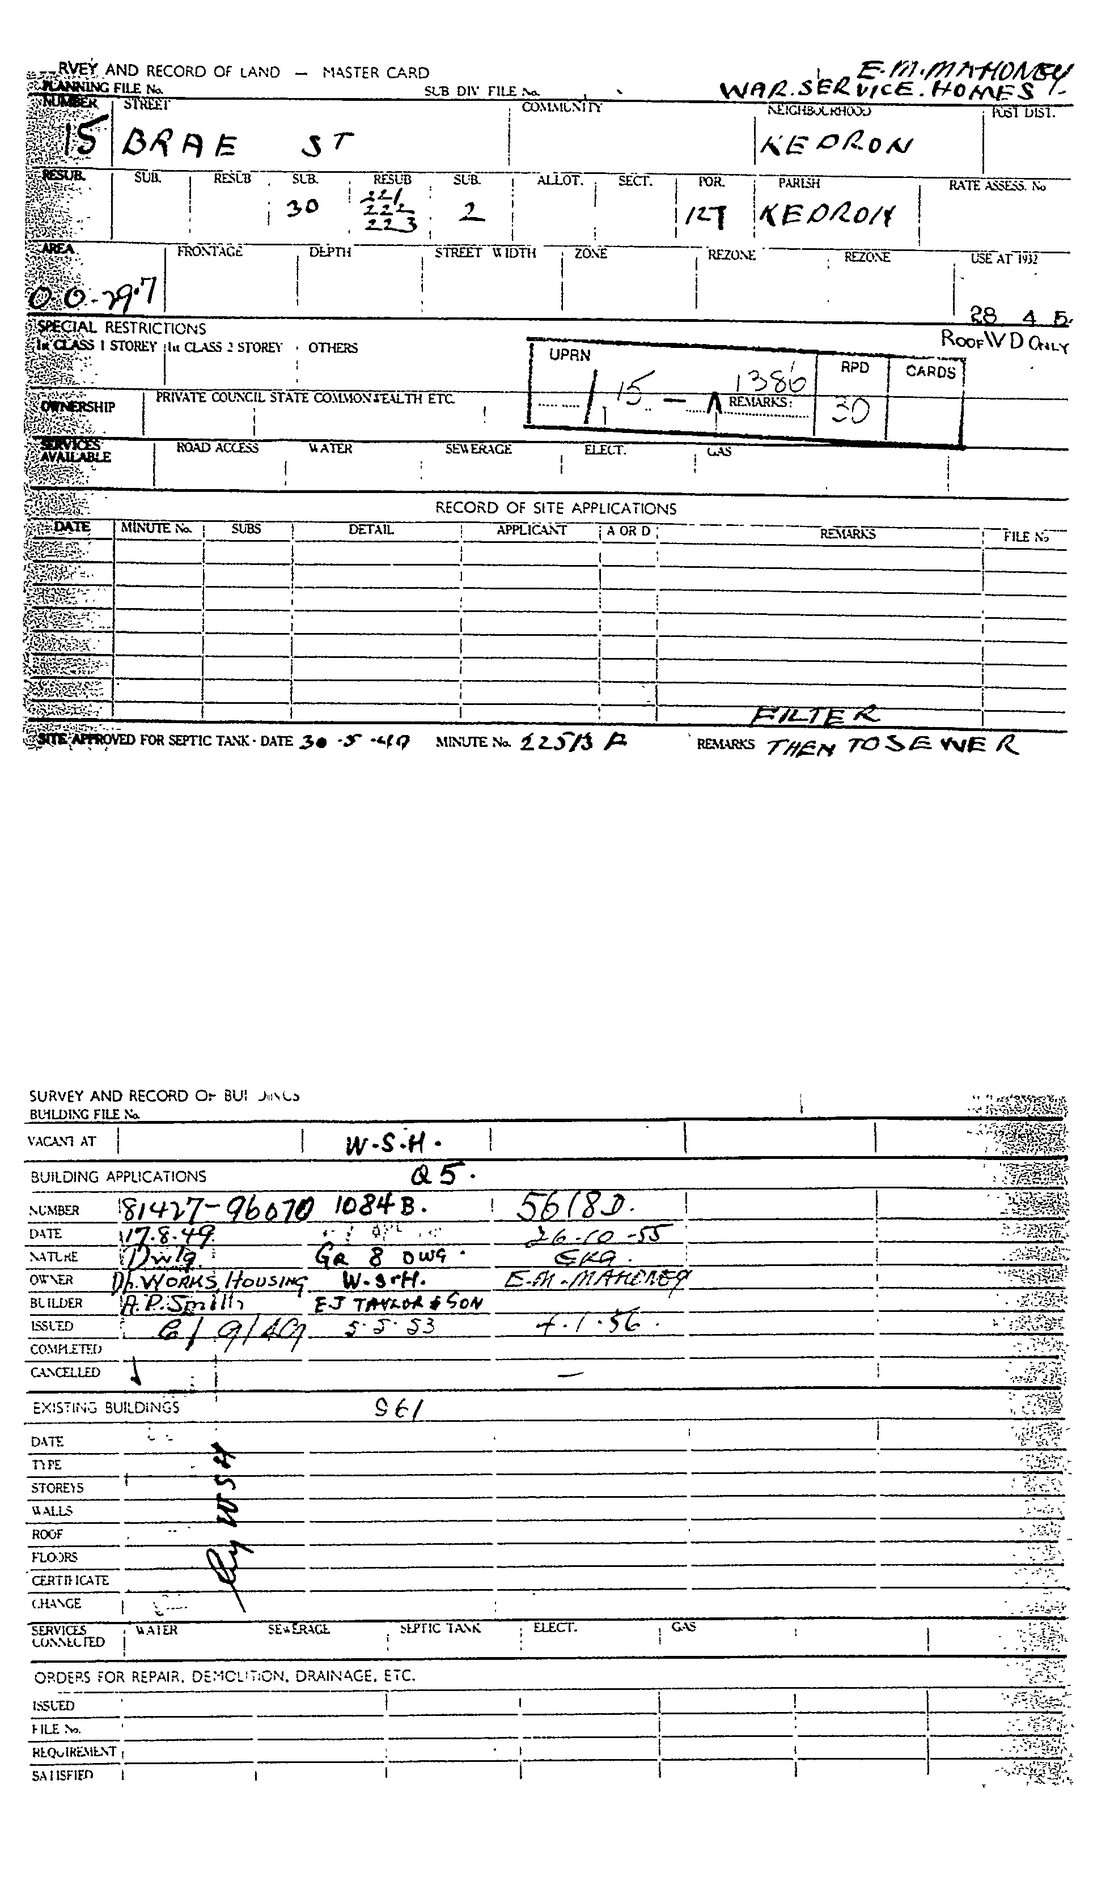 RVEY AND RECORD OF LAND — MASTER CARD
E.M.MAHONEY
PLANNING FILE No. SUB DIV FILE No. WAR.SERVICE.HOMES
NUMBER STREET COMMUNITY NEIGHBOURHOOD POST DIST.
15 BRAE ST KEDRON
RESUB. SUB. RESUB SUB. RESUB SUB. ALLOT. SECT. POR. PARISH RATE ASSESS. No
30 221 222 223 2 127 KEDRON
AREA FRONTAGE DEPTH STREET WIDTH ZONE REZONE REZONE USE AT 1932
0-0-29.7
28 4 5
SPECIAL RESTRICTIONS
ROOFWD ONLY
1st CLASS 1 STOREY 1st CLASS 2 STOREY OTHERS
UPRN RPD CARDS
15 — 1386 REMARKS: 30
OWNERSHIP PRIVATE COUNCIL STATE COMMONWEALTH ETC.
SERVICES AVAILABLE ROAD ACCESS WATER SEWERAGE ELECT. GAS
RECORD OF SITE APPLICATIONS
DATE MINUTE No. SUBS DETAIL APPLICANT A OR D REMARKS FILE No
FILTER
SITE APPROVED FOR SEPTIC TANK - DATE 30-5-49 MINUTE No. REMARKS THEN TO SEWER
SURVEY AND RECORD OF BUI
BUILDING FILE No.
VACANT AT W-S-H.
BUILDING APPLICATIONS Q5.
NUMBER 81427-96070 1084B. 5618D.
DATE 17.8.49 26-10-55
NATURE Dwlg. GR 8 DWG.
OWNER Dp. WORKS, HOUSING W.S.H. E.M.MAHONEY
BUILDER A.P.Smith EJ TAYLOR & SON
ISSUED 6/9/49 5.5.53 4.1.56.
COMPLETED
CANCELLED —
EXISTING BUILDINGS S61
DATE
TYPE
STOREYS
WALLS
ROOF
FLOORS
CERTIFICATE
CHANGE
WSH
SERVICES CONNECTED WATER SEWERAGE SEPTIC TANK ELECT. GAS
ORDERS FOR REPAIR, DEMOLITION, DRAINAGE, ETC.
ISSUED
FILE No.
REQUIREMENT
SATISFIED